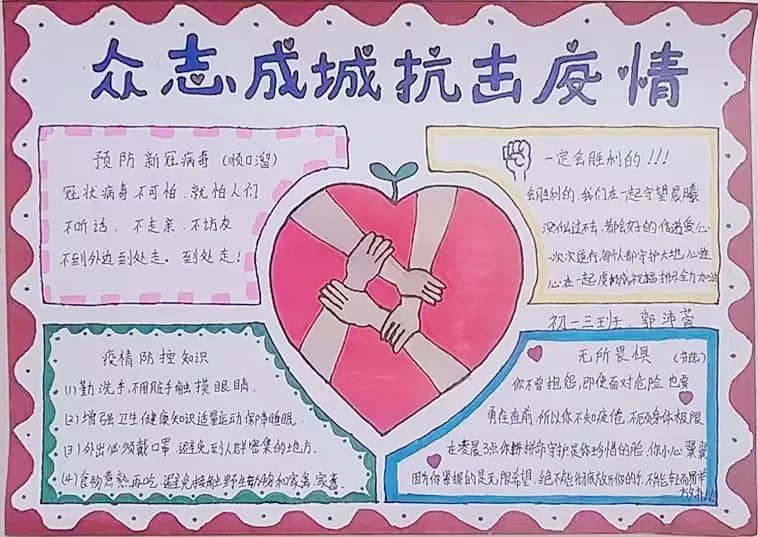 众志成城抗击疫情
预防新冠病毒(顺口溜)
冠状病毒不可怕.就怕人们
不听话.不走亲.不访友
不到外边到处走。到处走!
一定会胜利的!!!
会胜利的,我们在一起守望晨曦
深
过去,
会好的
爱心
守护大地心连
心在一起
祝福
初一三班.郭沛萱
疫情防控知识
(1)勤洗手,不用脏手触摸眼睛.
(2)增强卫生健康知识适量运动保障睡眠.
(3)外出必须戴口罩,避免到人群密集的地方.
(4)食物煮熟再吃,避免接触野生动物和家禽家畜.
无所畏惧
你不曾抱怨,即使面对危险也要
勇往直前.所以你不知疲倦,不顾身体极限
在凌晨3点你拼命守护是你珍惜的脸,你小心翼翼
因为你紧握的是无限希望,绝不能
放开你的手,不能轻而易举